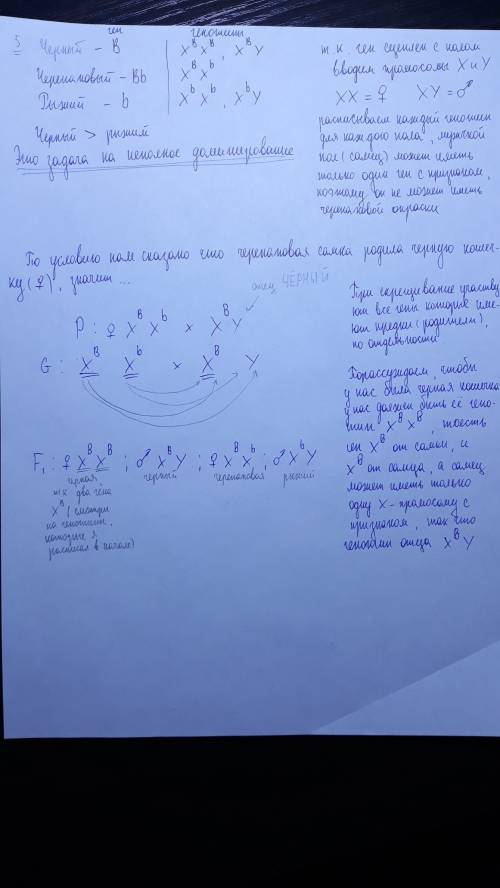 3
Черный – B
ген
генотипы
X^B X^B, X^B Y
Черепаховый – Bb
X^B X^b
Рыжий – b
X^b X^b, X^b Y
Черный > рыжий
Это задача на неполное доминирование
т к ген сцеплен с полом
вводим хромосомы X и Y
XX = ♀ XY = ♂
расписываем каждый генотип
для каждого пола, мужской
пол (самец) может иметь
только один ген с признаком,
поэтому он не может иметь
черепаховой окраски
По условию нам сказано что черепаховая самка родила черную кошеч-
ку (♀), значит ...
отец ЧЁРНЫЙ
P : ♀ X^B X^b × X^B Y
G : X^B X^b × X^B Y
F₁ : ♀ X^B X^B ; ♂ X^B Y ; ♀ X^B X^b ; ♂ X^b Y
черная, черный черепаховая рыжий
т.к два гена
X^B (смотри
на генотипы,
которые я
расписал в начале)
При скрещивание участву
ют все гены которые име-
ют предки (родители),
по отдельности
Порассуждаем, чтобы
у нас была черная кошечка
у нас должен быть её гено-
тип X^B X^B, тоесть
ген X^B от самки, и
X^B от самца, а самец
может иметь только
одну X-хромосому с
признаком, так что
генотип отца X^B Y